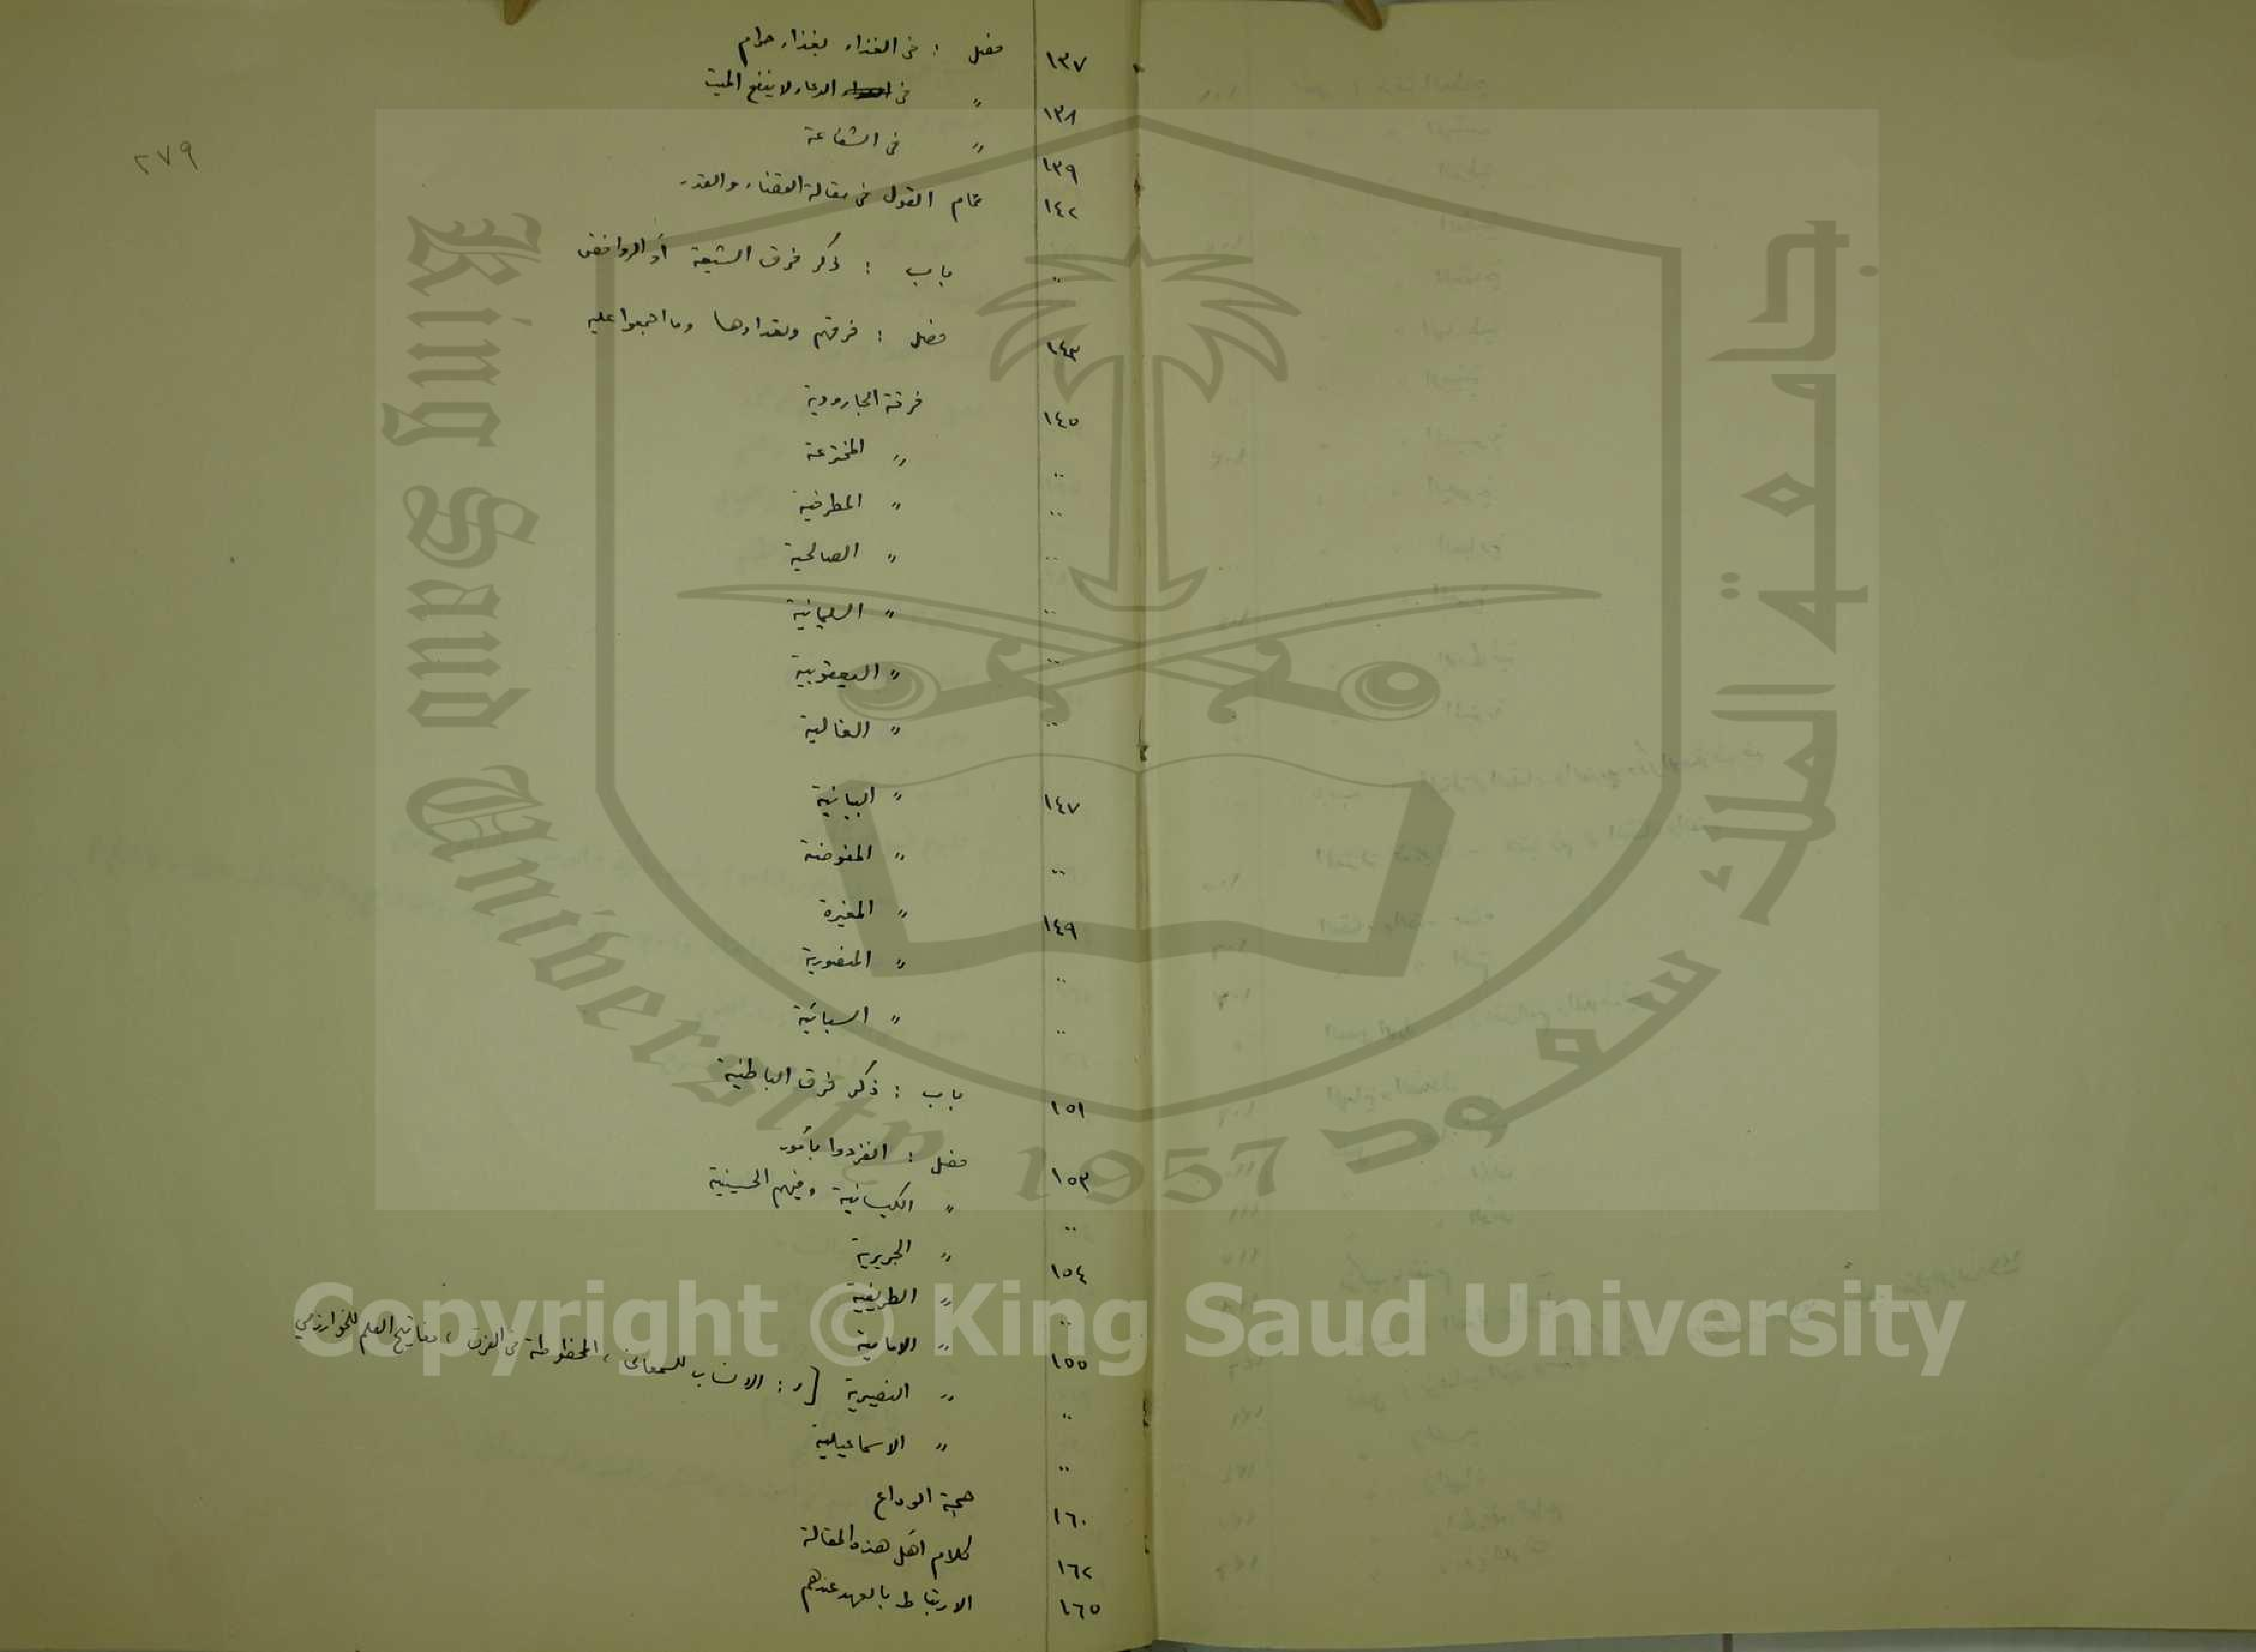 ١٣٧ فصل : في الغذاء بغذاء حرام
١٣٨ " في الدعاء لا ينفع الميت
١٣٩ " في الشفاعة
٢٧٩
١٤٢ تمام القول في مقالة القضاء والقدر
.. باب : ذكر فرق الشيعة أو الروافض
١٤٣ فصل : فرقهم وتعدادها وما اجمعوا عليه
١٤٥ فرقة الجارودية
.. " المخترعة
.. " المطرفية
.. " الصالحية
.. " السليمانية
.. " اليعقوبية
.. " الغالية
١٤٧ " البيانية
.. " المفوضة
١٤٩ " المغيرة
.. " المنصورية
.. " السبائية
١٥١ باب : ذكر فرق الباطنية
١٥٣ فصل : انفردوا بأمور
.. " الكيسانية وفيهم الحسينية
١٥٤ " الجريرية
.. " الطريفية
١٥٥ " الامامية
.. " النصيرية [ ر : الانساب للسمعاني ، المخطوطة في الفرق ، مفاتيح العلم للخوارزمي
.. " الاسماعيلية
١٦٠ حجة الوداع
١٦٢ كلام أهل هذه المقالة
١٦٥ الارتباط بالعهد عندهم
King Saud University
جامعة الملك سعود
1957
Copyright © King Saud University